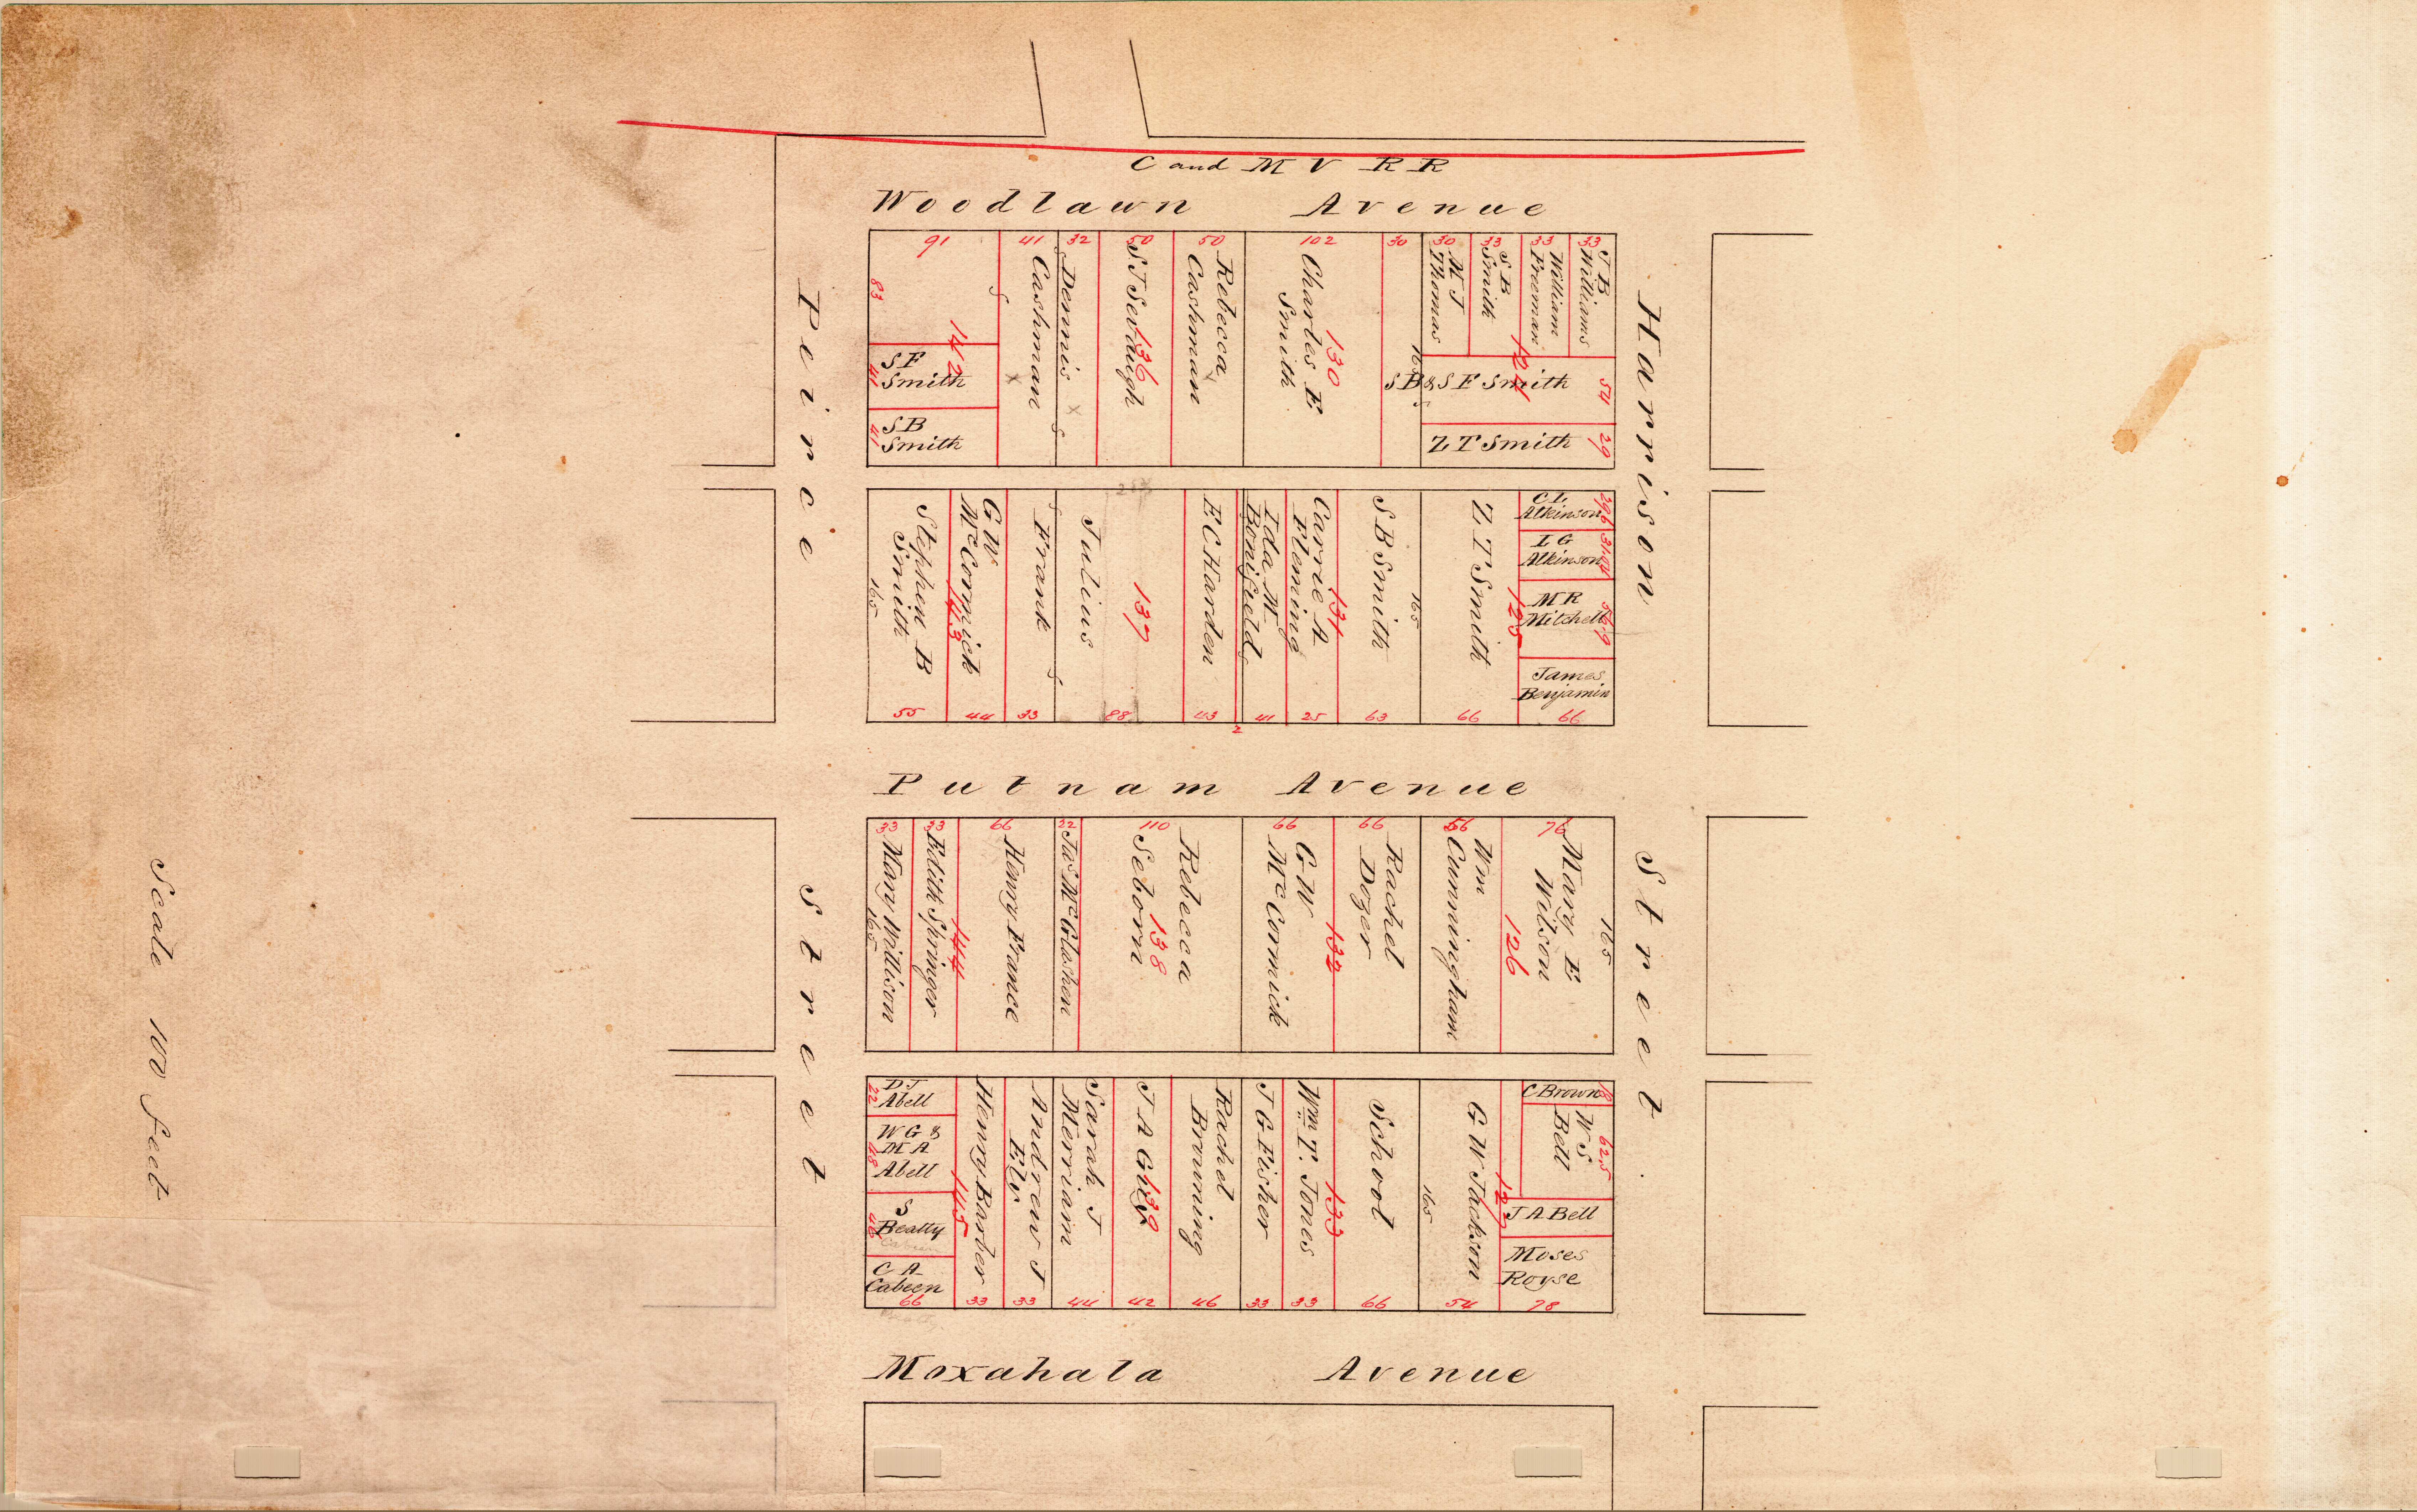 C and M V R R
Woodlawn Avenue
Peirce Street
Harrison Street
91
41
32
50
50
102
30
30
33
33
33
83
142
S F
Smith
41
S B
Smith
41
Cashman
Dennis
136
Rebecca
Cashman
Charles E
Smith
130
165
M J
Thomas
S B
Smith
William
Freeman
J B
Williams
124
S B & S F Smith
54
Z T Smith
29
Stephen B
Smith
165
G W
McCormick
143
Frank
Julius
137
E C Harden
Ida M
Bonifield
Carrie A
Fleming
131
S B Smith
165
Z T Smith
125
C L
Atkinson
I G
Atkinson
M R
Mitchell
James
Benjamin
55
44
33
88
43
2
41
25
63
66
66
Putnam Avenue
33
33
66
22
110
66
66
56
76
Mary Willison
165
Edith Springer
144
Henry France
Jas McGlashen
Rebecca
Seborn
138
G W
McCormick
132
Rachel
Dozer
Wm
Cunningham
126
Mary E
Wilson
165
D J
Abell
22
W G &
M A
Abell
S
Beatty
C A
Cabeen
Henry Barber
145
Andrew J
Ely
Sarah J
Merriam
J A
139
Rachel
Brunning
J G Fisher
Wm T. Jones
133
School
165
G W Jackson
127
C Brown
W S
Bell
62.5
J A Bell
Moses
Royse
66
33
33
44
42
46
33
33
66
54
78
Moxahala Avenue
Scale 100 feet